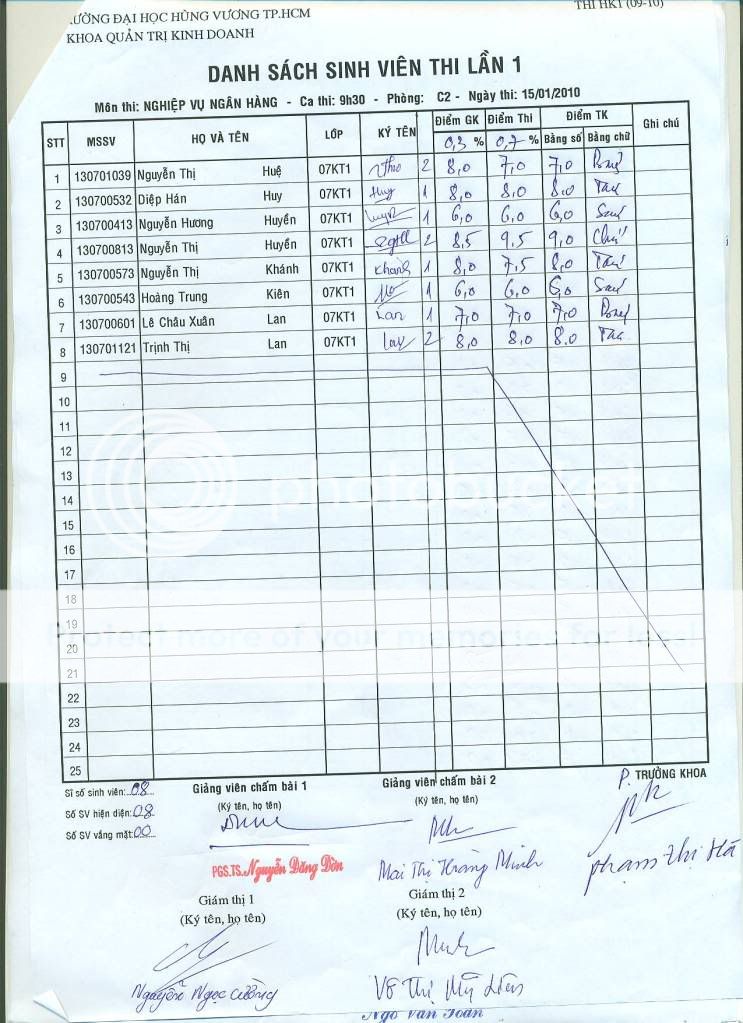 ƯỜNG ĐẠI HỌC HÙNG VƯƠNG TP.HCM
THI HK1 (09-10)
KHOA QUẢN TRỊ KINH DOANH
DANH SÁCH SINH VIÊN THI LẦN 1
Môn thi: NGHIỆP VỤ NGÂN HÀNG - Ca thi: 9h30 - Phòng: C2 - Ngày thi: 15/01/2010
STT MSSV HỌ VÀ TÊN LỚP KÝ TÊN Điểm GK Điểm Thi Điểm TK Ghi chú
0,3 % 0,7 % Bằng số Bằng chữ
1 130701039 Nguyễn Thị Huệ 07KT1 2 8,0 7,0 7,0
2 130700532 Diệp Hán Huy 07KT1 Huy 1 8,0 8,0 8.0
3 130700413 Nguyễn Hương Huyền 07KT1 1 6,0 6,0 6,0
4 130700813 Nguyễn Thị Huyền 07KT1 2 8,5 9,5 9,0
5 130700573 Nguyễn Thị Khánh 07KT1 Khánh 1 8,0 7,5 8,0
6 130700543 Hoàng Trung Kiên 07KT1 1 6,0 6,0 6,0
7 130700601 Lê Châu Xuân Lan 07KT1 Lan 1 7,0 7,0 7,0
8 130701121 Trịnh Thị Lan 07KT1 2 8,0 8,0 8.0
9
10
11
12
13
14
15
16
17
18
19
20
21
22
23
24
25
photobucket
Protect more of your memories for less!
Sĩ số sinh viên: 08 Giảng viên chấm bài 1 Giảng viên chấm bài 2 P. TRƯỞNG KHOA
Số SV hiện diện: 08 (Ký tên, họ tên) (Ký tên, họ tên)
Số SV vắng mặt: 00
PGS.TS. Nguyễn Đăng Dờn Mai Thị Hoàng Minh Phạm Thị Hà
Giám thị 1 Giám thị 2
(Ký tên, họ tên) (Ký tên, họ tên)
Nguyễn Ngọc Cường Võ Thị Mỹ Liên
Ngô Văn Toàn